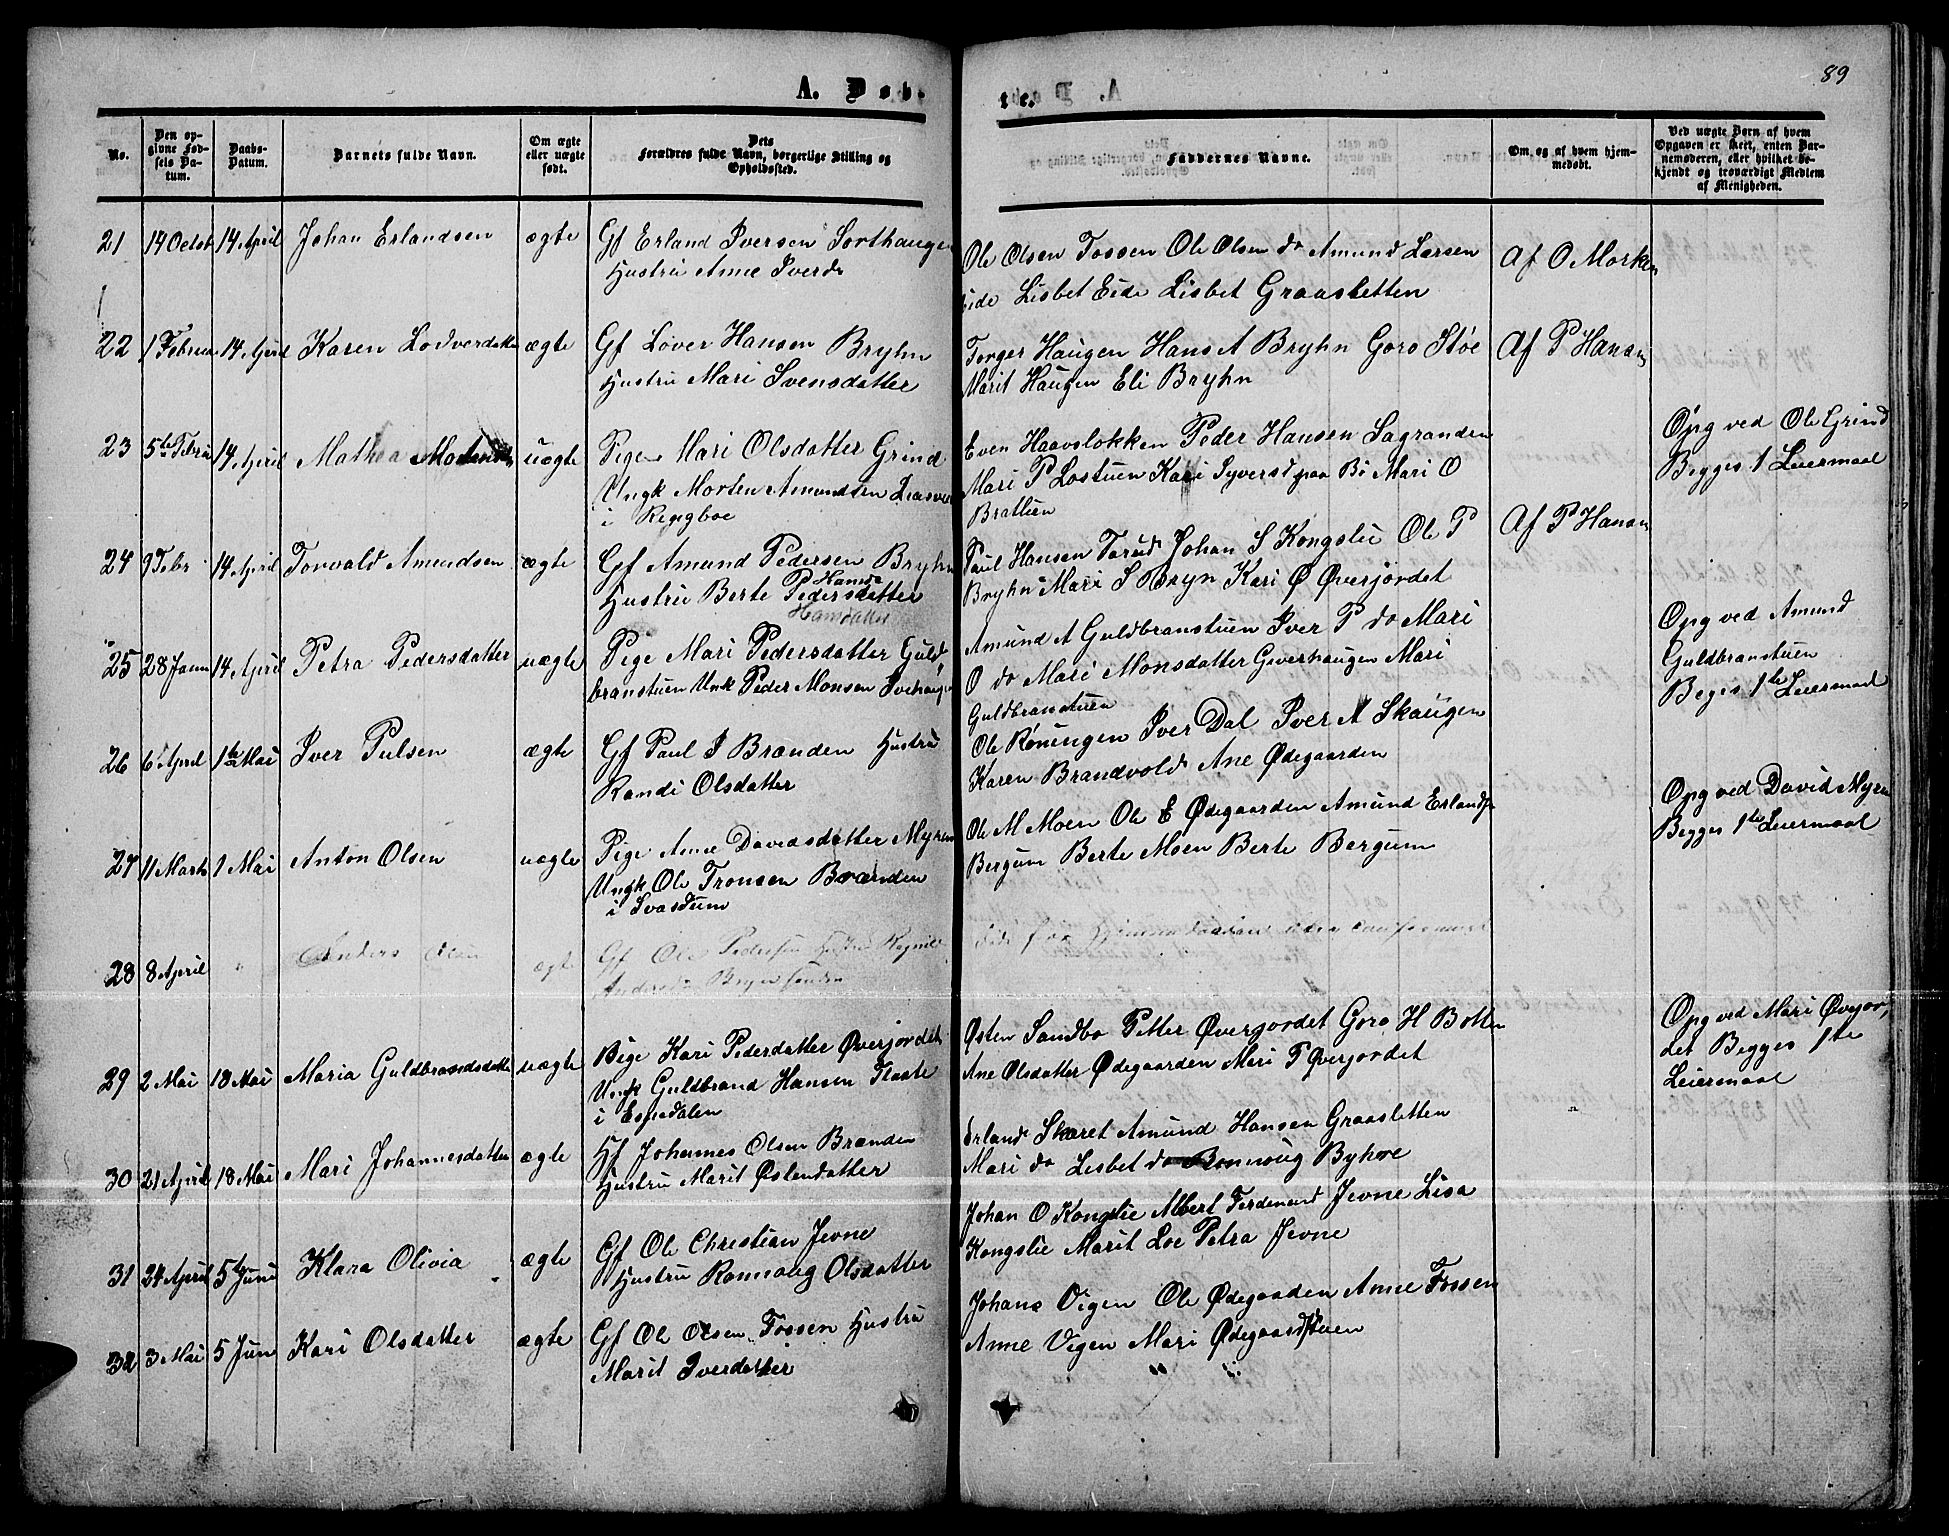 89
A. Døb-
te.
No.
Den op-
givne Fød-
sels Da-
tum.
Daabs-
Datum.
Barnets fulde Navn.
Om ægte
eller uægte
født.
Dets
Forældres fulde Navn, borgerlige Stilling og
Opholdssted.
Faddernes Navne.
Om og af hvem hjem-
medøbt.
Ved uægte Børn af hvem
Opgaven er skeet, enten Bar-
nemoderen, eller hvilket be-
kjendt og troværdigt Medlem
af Menigheden.
21 14 Octob 14 April Johan Erlandsen ægte Gf Erland Iversen Sorthaugen
Hustru Anne Iversd
Ole Olsen Fossen Ole Olsen do Amund Larsen
Eide Lisbet Eide Lisbet Graasletten
Af O Morken
22 1 Februa 14 April Karen Lodverdatte ægte Gf Løver Hansen Bryhn
Hustru Mari Svensdatter
Torger Haugen Hans A Bryhn Goro Støe
Marit Haugen Eli Bryhn
Af P Hansn
23 5te Febru 14 April Mathea uægte Pige Mari Olsdatter Grind
Ungk Morten Amundsen
i Ringboe
Even Haavslokken Peder Hansen Sagranden
Mari P Lostuen Kari Syversd paa Bi Mari O
Brattien
Opg ved Ole Grind
Begges 1 Leiermaal
24 9 Febr 14 April Torvald Amundsen ægte Gf Amund Pedersen Bryhn
Hustru Berte Pedersdatter
Hansdatter
Paul Hansen Torud Johan S Kongslie Ole P
Bryhn Mari S Bryn Kari Ø Øverjordet
Af P Hansn
25 28 Janu 14 April Petra Pedersdatter uægte Pige Mari Pedersdatter Guld
branstuen Unk Peder Monsen
Amund A Guldbranstuen Iver P do Mari
O do Mari Monsdatter Giverhaugen Mari
Guldbranstuen
Opg ved Amund
Guldbranstuen
Beges 1te Leiermaal
26 6 April 1te Mai Iver Pulsen ægte Gf Paul I Brænden Hustru
Randi Olsdatter
Ole Røningen Iver Dal Iver A Skaugen
Karen Brandvold Ane Ødegaarden
27 11 Marts 1 Mai Anton Olsen uægte Pige Anne Davidsdatter Myren
Ungk Ole Tronsen Brænden
i Svasdum
Ole M Moen Ole E Ødegaarden Amund Erlands
Bergum Berte Moen Berte Bergum
Opg ved David Myrn
Begges 1te Leiermaal
28 8 April " Anders Olsen ægte Gf Ole Pedersen Hustru Ragnild
Andersd Bryn
døde før
29 2 Mai 18 Mai Maria Guldbrandsdatte uægte Pige Kari Pederdatter Øverjordet
Ungk Guldbrand Hansen Flaate
i Espedalen
Østen Sandbo Petter Øvergordet Goro H Botten
Ane Olsdatter Ødegaarden Mari P Øverjordet
Opg ved Mari Øvejor,
det Begges 1te
Leiermaal
30 21 April 18 Mai Mari Johannesdatter ægte Hf Johannes Olsen Brænden
Hustru Marit Østendatter
Erland Skaret Amund Hansen Graasletten
Mari do Lisbet do Ronnoug Byhre
31 24 April 5te Juni Klara Olivia ægte Gf Ole Christian Jevne
Hustru Ronnoug Olsdatter
Johan O Kongslie Albert Ferdenand Jevne Lisa
Kongslie Marit Loe Petra Jevne
32 3 Mai 5 Juni Kari Olsdatter ægte Gf Ole Olsen Fossen Hustru
Marit Iverdatter
Johans Vigen Ole Ødegaaden Anne Fossen
Anne Vigen Mari Ødegaardstuen